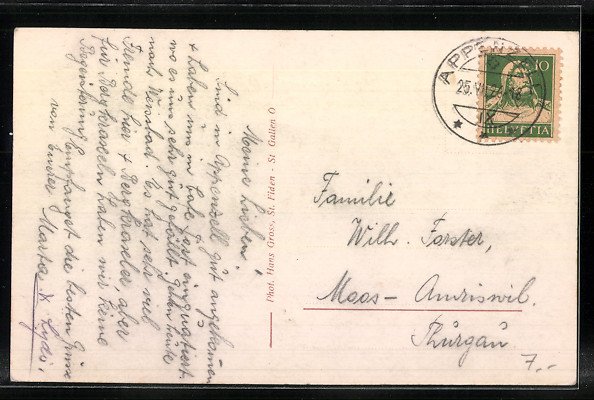 Meine Lieben!
Sind in Appenzell gut angekommen
+ haben uns im Cafe fest einquartiert
wo es uns sehr gut gefällt. Gehen heute
nach Weissbad. Es hat sehr viel
Fremde hier + Bergkraxeler, aber
für Bergkraxeln haben wir keine
Begeisterung. Empfanget die besten Grüsse
von Eurer Martha & Lydi.
Phot. Hans Gross, St. Fiden - St. Gallen O
APPENZ
25. VI
10
HELVETIA
Familie
Wilh. Forster,
Moos-Amriswil.
Thurgau.
7.-